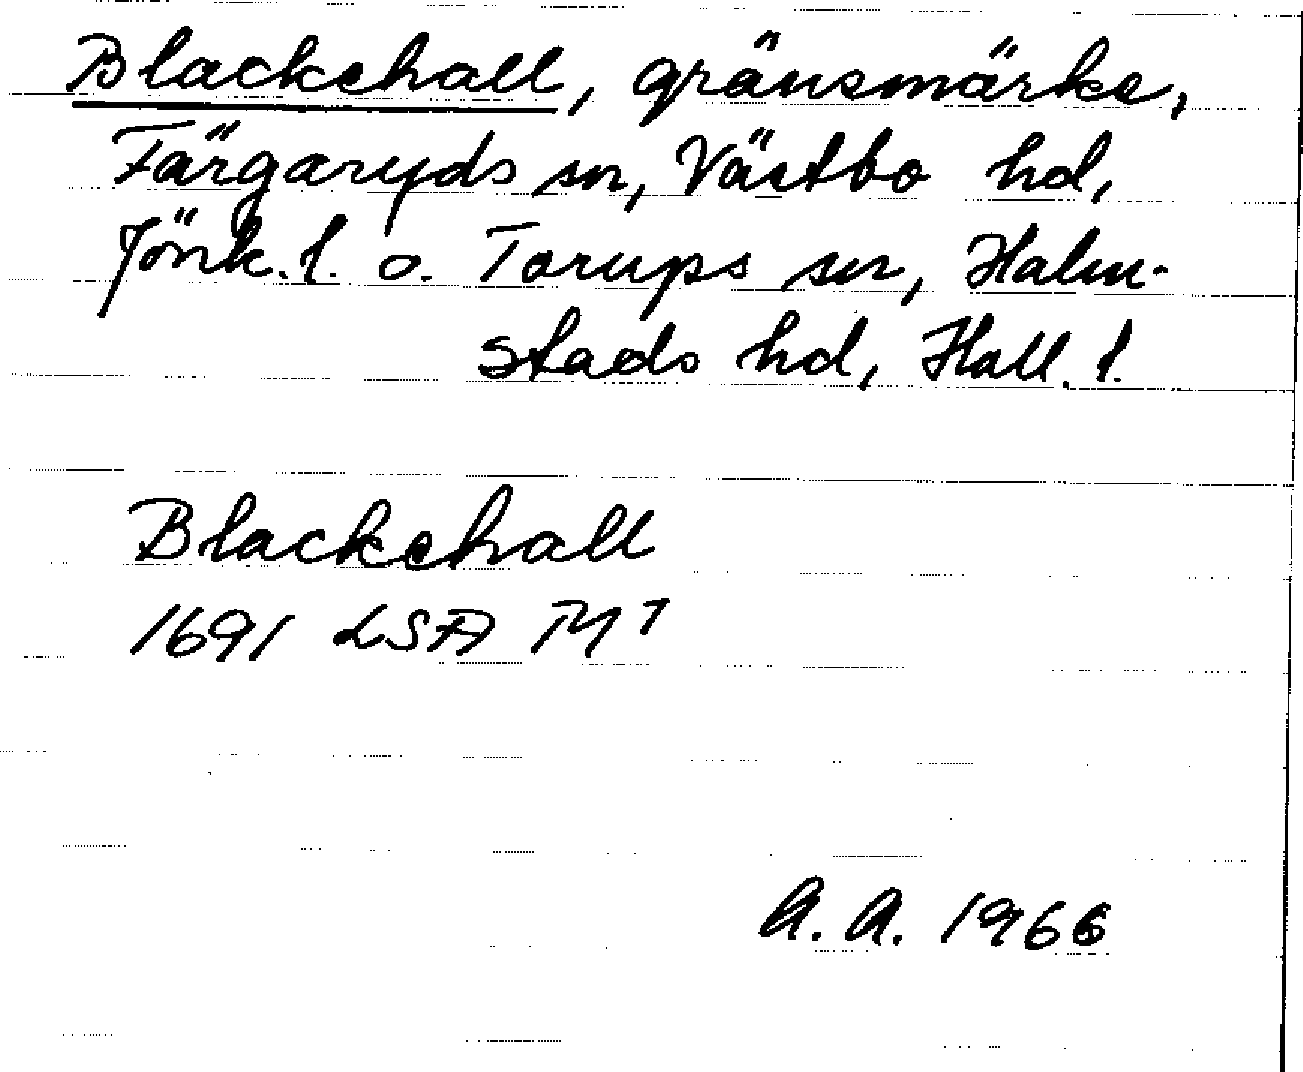 Blackehall, gränsmärke,
Färgaryds sn, Västbo hd,
Jönk. l. o. Torups sn, Halm-
stads hd, Hall. l.
Blackehall
1691 LSA M1
A. A. 1966